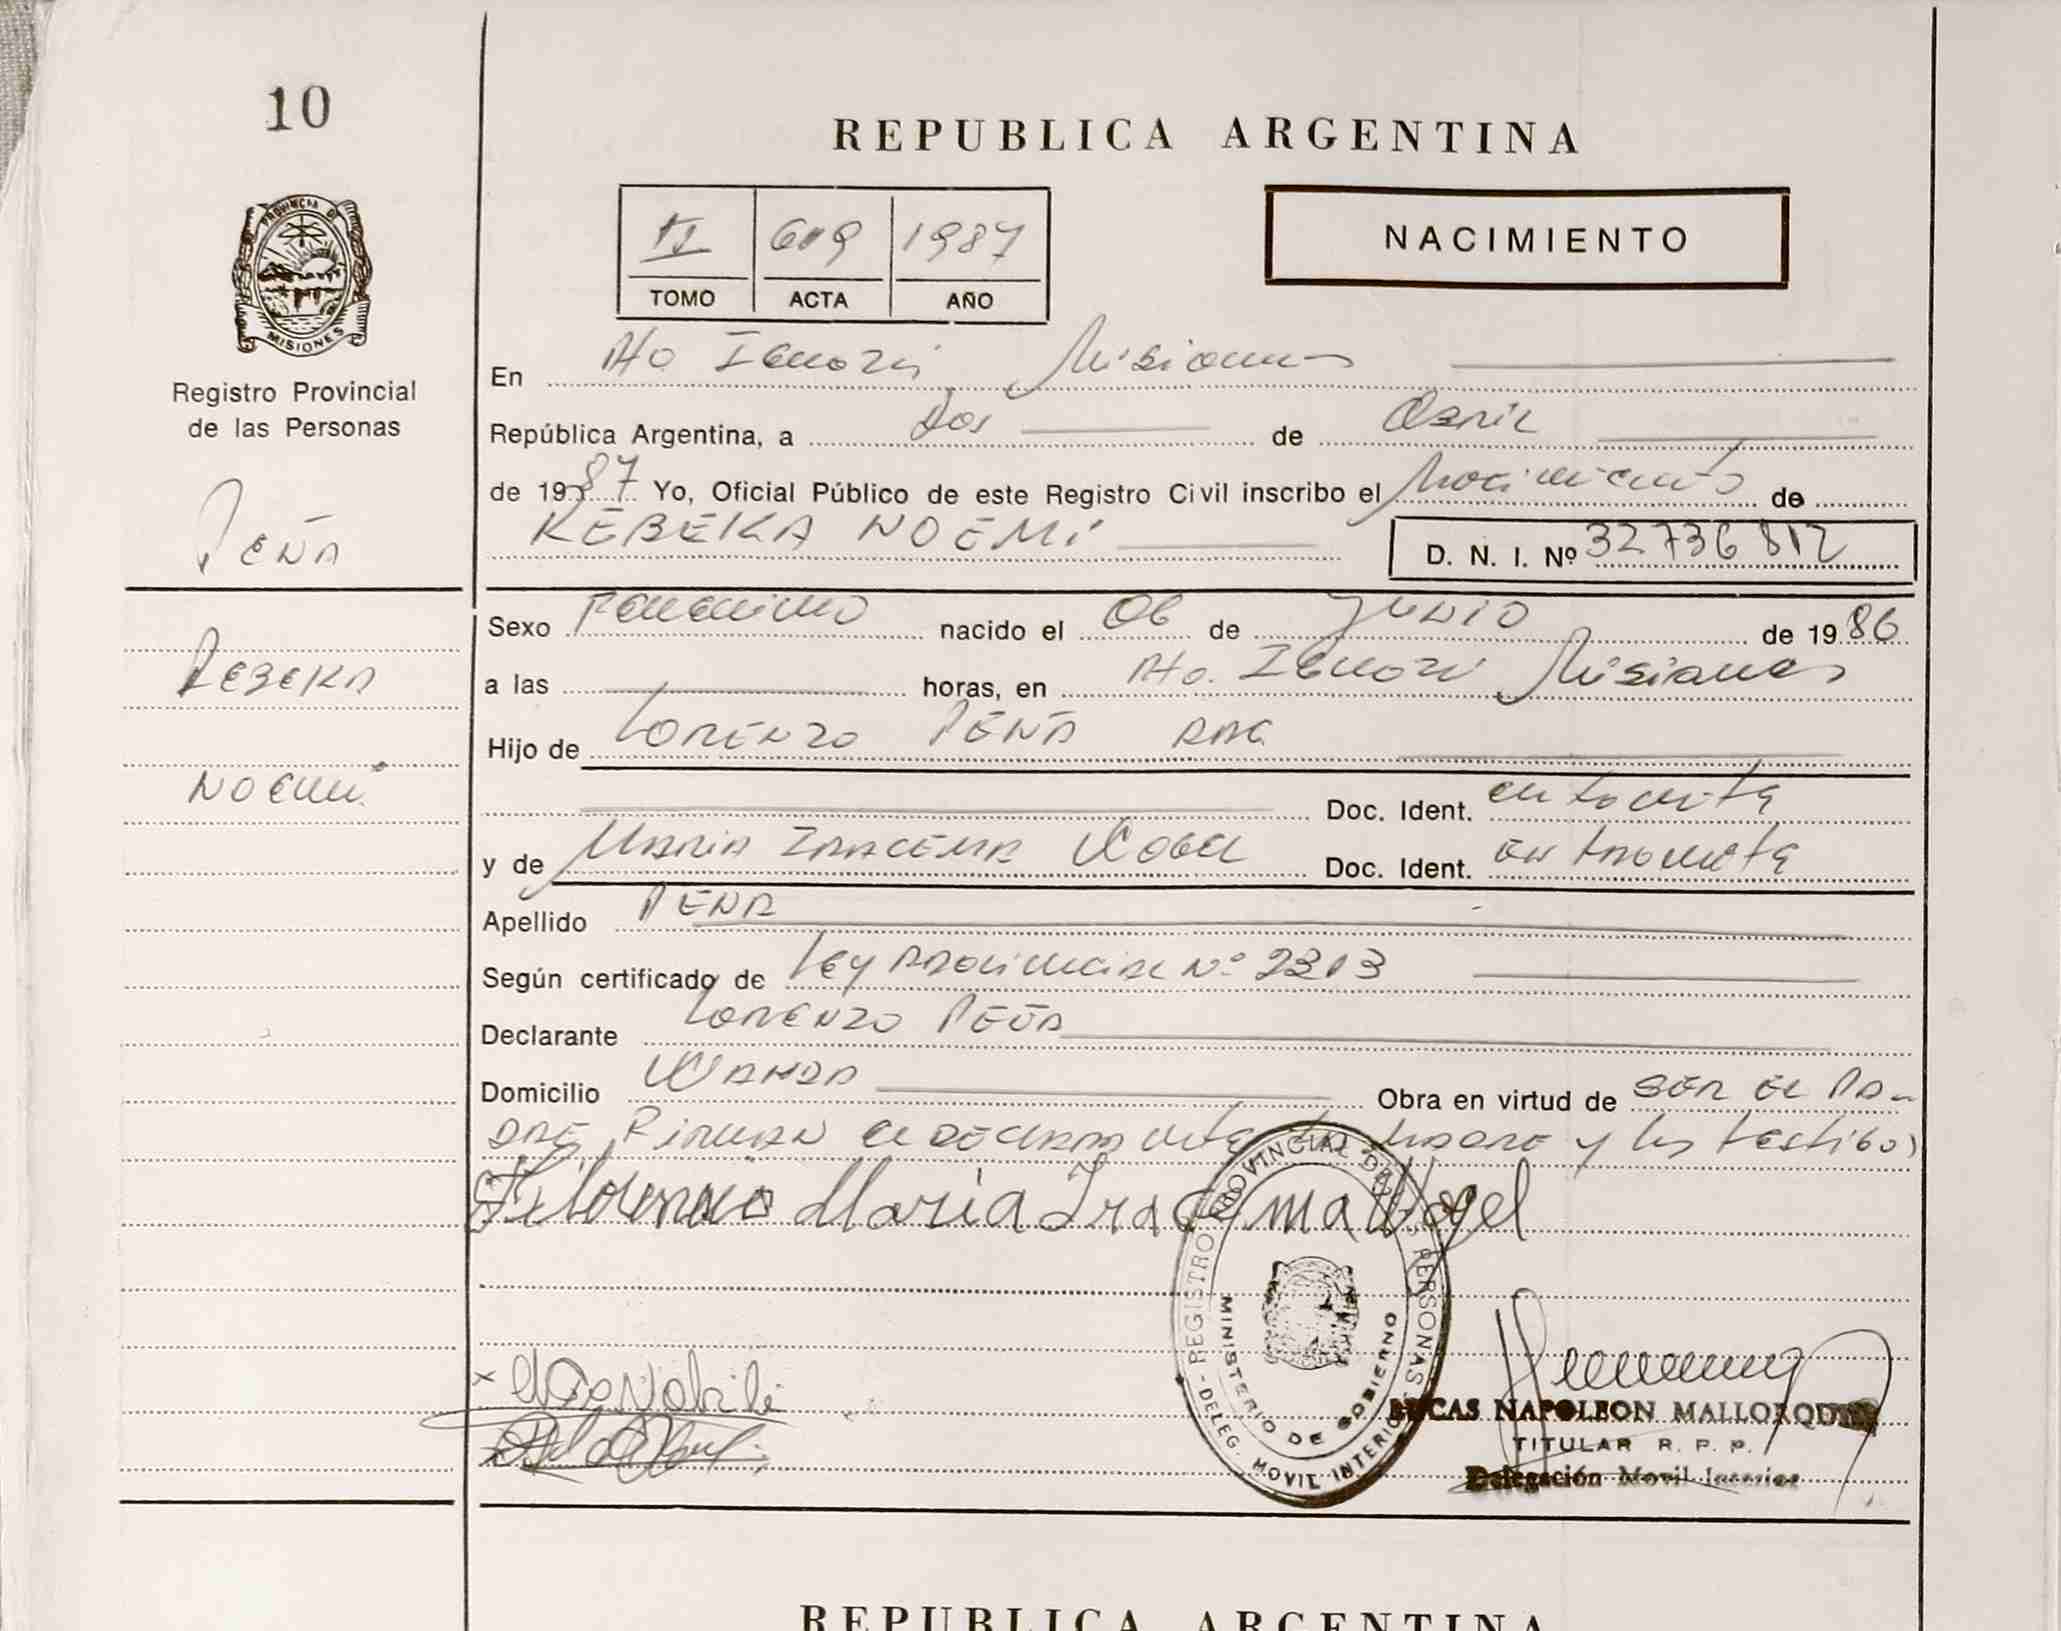 10
REPUBLICA ARGENTINA
II 609 1987
TOMO ACTA AÑO
NACIMIENTO
PROVINCIA DE
MISIONES
Registro Provincial
de las Personas
PEÑA
REBEKA
NOEMÍ
En Pto Iguazú Misiones
República Argentina, a Dos de Abril
de 1987 Yo, Oficial Público de este Registro Civil inscribo el Nacimiento de
REBEKA NOEMÍ D. N. I. Nº 32736812
Sexo Femenino nacido el 06 de JUNIO de 1986
a las horas, en Pto. Iguazú Misiones
Hijo de LORENZO PEÑA ARG
Doc. Ident. en trámite
y de MARIA IRACEMA VOGEL Doc. Ident. en trámite
Apellido PEÑA
Según certificado de Ley Provincial Nº 2313
Declarante LORENZO PEÑA
Domicilio WANDA Obra en virtud de SER EL PA-
DRE Firman el DECLARANTE la MADRE y los testigos
Maria Iracema Vogel
REGISTRO PROVINCIAL DE LAS PERSONAS
- DELEG. MOVIL INTERIOR
MINISTERIO DE GOBIERNO
LUCAS NAPOLEON
TITULAR R. P. P.
Delegación Movil Interior
REPUBLICA ARGENTINA